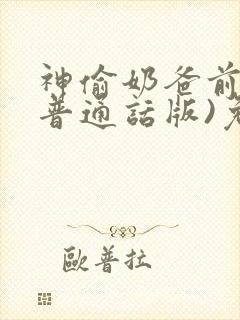 神偷奶爸前
普通話版)免
歐普拉